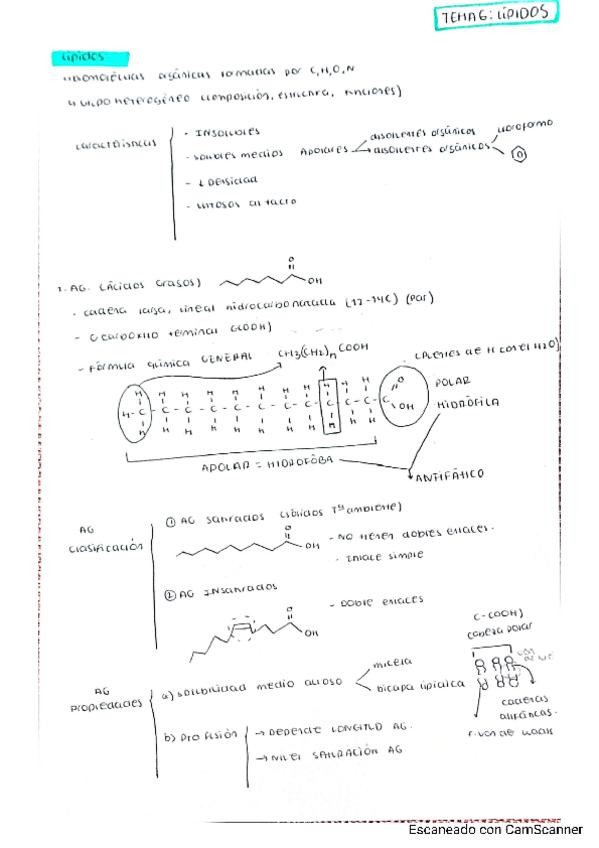 TEMA 6: LÍPIDOS
Lípidos
Biomoléculas orgánicas formadas por C, H, O, N
Grupo heterogéneo (composición, estructura, funciones)
características
- INSOLUBLES
- solubles medios APOLARES
disolventes orgánicos
disolventes orgánicos
cloroformo
- ↓ Densidad
- untosos al tacto
1. AG. (Ácidos Grasos)
O
OH
- cadena larga, lineal hidrocarbonatada (12-14C) (par)
- carboxilo terminal COOH)
- Fórmula química GENERAL CH3(CH2)n COOH
(puentes de H con el H2O)
H H H H H H H H H H H
H-C-C-C-C-C-C-C-C-C-C-C
O
OH
H H H H H H H H H H
POLAR
HIDRÓFILA
APOLAR = HIDROFÓBA
ANTIFÁTICO
AG
clasificación
① AG saturados (sólidos Tª ambiente)
O
OH
- NO tienen dobles enlaces.
- Enlace simple
② AG Insaturados
- Doble enlaces
O
OH
AG
Propiedades
a) solubilidad medio acuoso
micela
bicapa lipídica
C-COOH)
cabeza polar
cadenas
b) Pto fusión
→ Depende LONGITUD AG.
→ Nivel SATURACIÓN AG
Escaneado con CamScanner